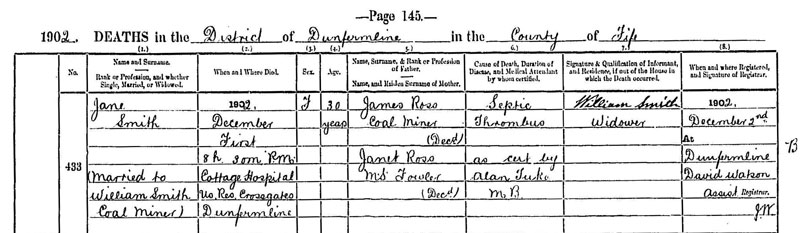 —Page 145.—
1902. DEATHS in the District of Dunfermline in the County of Fife
(1.) (2.) (3.) (4.) 5.) 6.) 7.) (8.)
No.
Name and Surname.
Rank or Profession, and whether Single, Married, or Widowed.
When and Where Died.
Sex.
Age.
Name, Surname, & Rank or Profession of Father.
Name, and Maiden Surname of Mother.
Cause of Death, Duration of Disease, and Medical Attendant by whom certified.
Signature & Qualification of Informant, and Residence, if out of the House in which the Death occurred.
When and where Registered, and Signature of Registrar.
433
Jane
Smith
(Married to
William Smith
Coal Miner)
1902,
December
First
8h 30m P.M.
Cottage Hospital
Us. Res. Crossgates
Dunfermline
F
30
years
James Ross
Coal Miner
(Decd)
Janet Ross
M.S. Fowler
(Decd)
Septic
Thrombus
as cert by
Alan Tuke
M.B.
William Smith
Widower
1902,
December 2nd
At
Dunfermline
David Watson
Assist Registrar.
J.W.
B